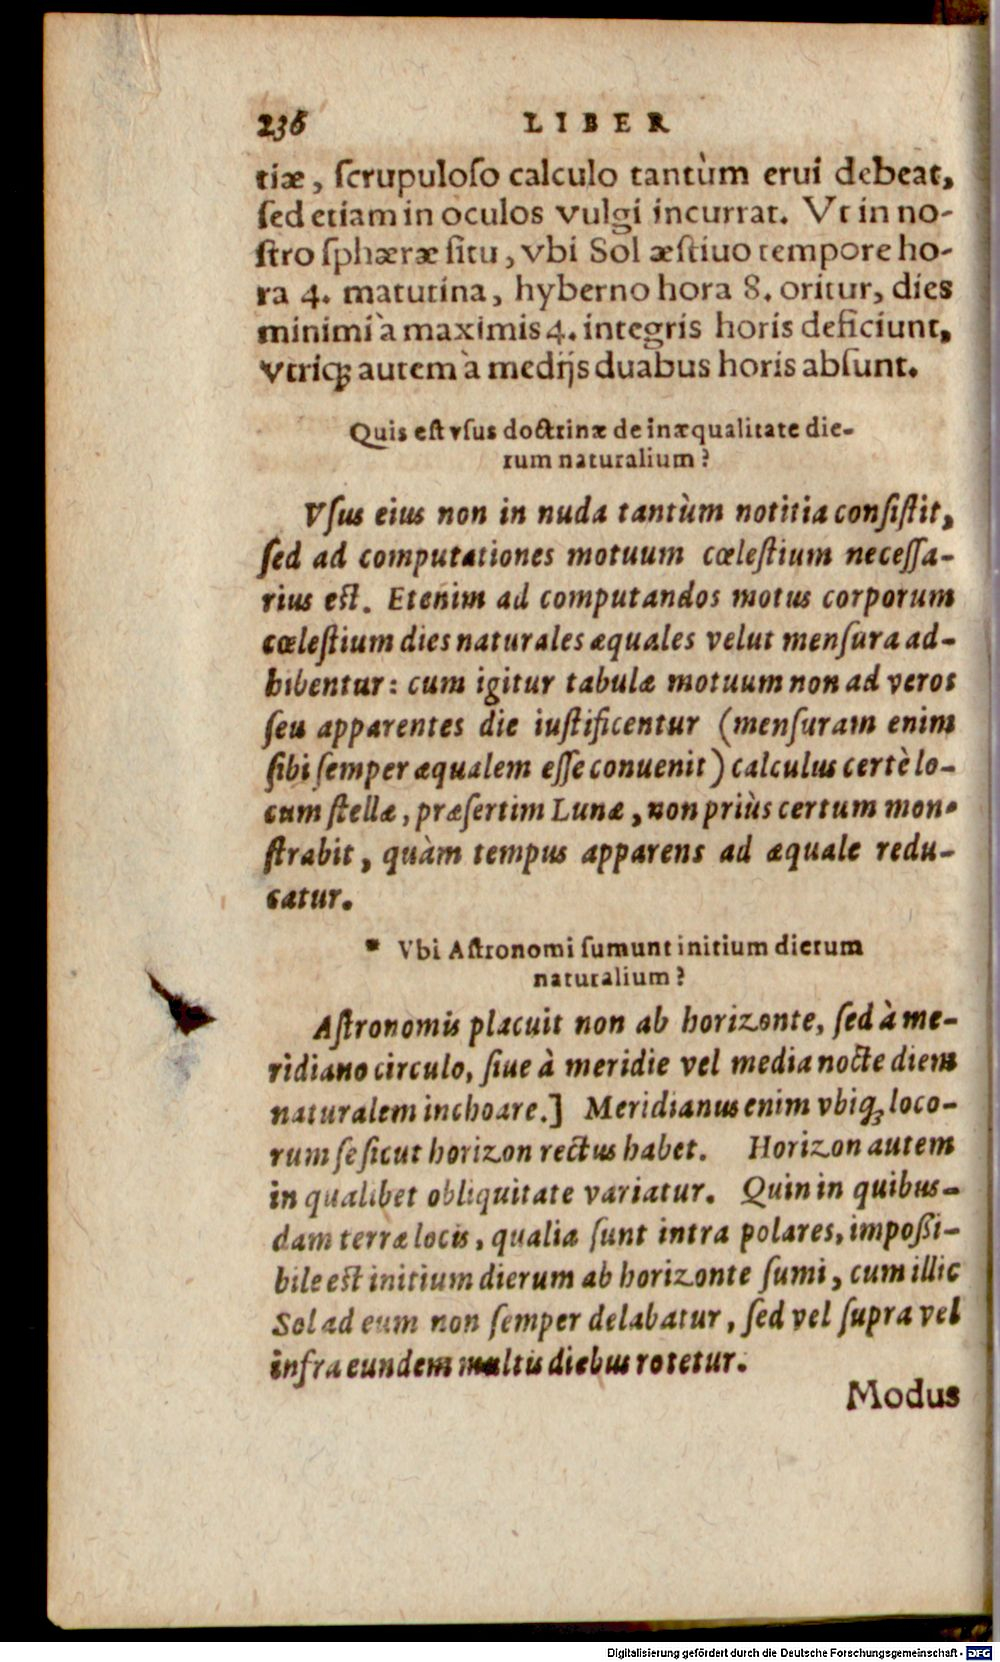 236 LIBER
tiæ, ſcrupuloſo calculo tantùm erui debeat,
ſed etiam in oculos vulgi incurrat. Vt in no-
ſtro ſphæræ ſitu, vbi Sol æſtiuo tempore ho-
ra 4. matutina, hyberno hora 8. oritur, dies
minimi à maximis 4. integris horis deficiunt,
vtriq; autem à medijs duabus horis abſunt.
Quis eſt vſus doctrinæ de inæqualitate die-
rum naturalium?
Vſus eius non in nuda tantùm notitia conſiſtit,
ſed ad computationes motuum cœleſtium neceſſa-
rius eſt. Etenim ad computandos motus corporum
cœleſtium dies naturales æquales velut menſura ad-
hibentur: cum igitur tabulæ motuum non ad veros
ſeu apparentes die iuſtificentur (menſuram enim
ſibi ſemper æqualem eſſe conuenit) calculus certè lo-
cum ſtellæ, præſertim Lunæ, non priùs certum mon-
ſtrabit, quàm tempus apparens ad æquale redu-
catur.
* Vbi Aſtronomi ſumunt initium dierum
naturalium?
Aſtronomis placuit non ab horizonte, ſed à me-
ridiano circulo, ſiue à meridie vel media nocte diem
naturalem inchoare.] Meridianus enim vbiq; loco-
rum ſe ſicut horizon rectus habet. Horizon autem
in qualibet obliquitate variatur. Quin in quibus-
dam terræ locis, qualia ſunt intra polares, impoßi-
bile eſt initium dierum ab horizonte ſumi, cum illic
Sol ad eum non ſemper delabatur, ſed vel ſupra vel
infra eundem multis diebus rotetur.
Modus
Digitalisierung gefördert durch die Deutsche Forschungsgemeinschaft - DFG